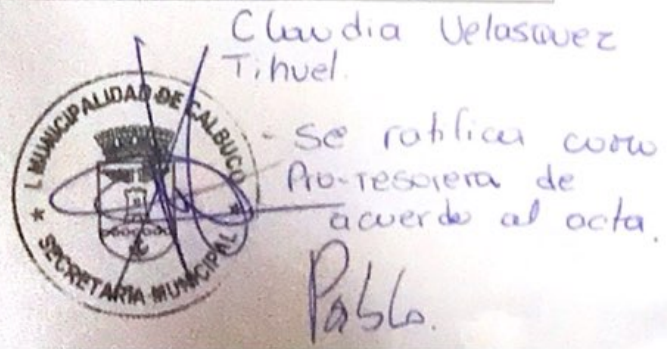 Claudia Velasquez
Tihuel.
- Se ratifica como
Pro-Tesorera de
acuerdo al acta.
Pablo.
I. MUNICIPALIDAD DE CALBUCO
* SECRETARIA MUNICIPAL *